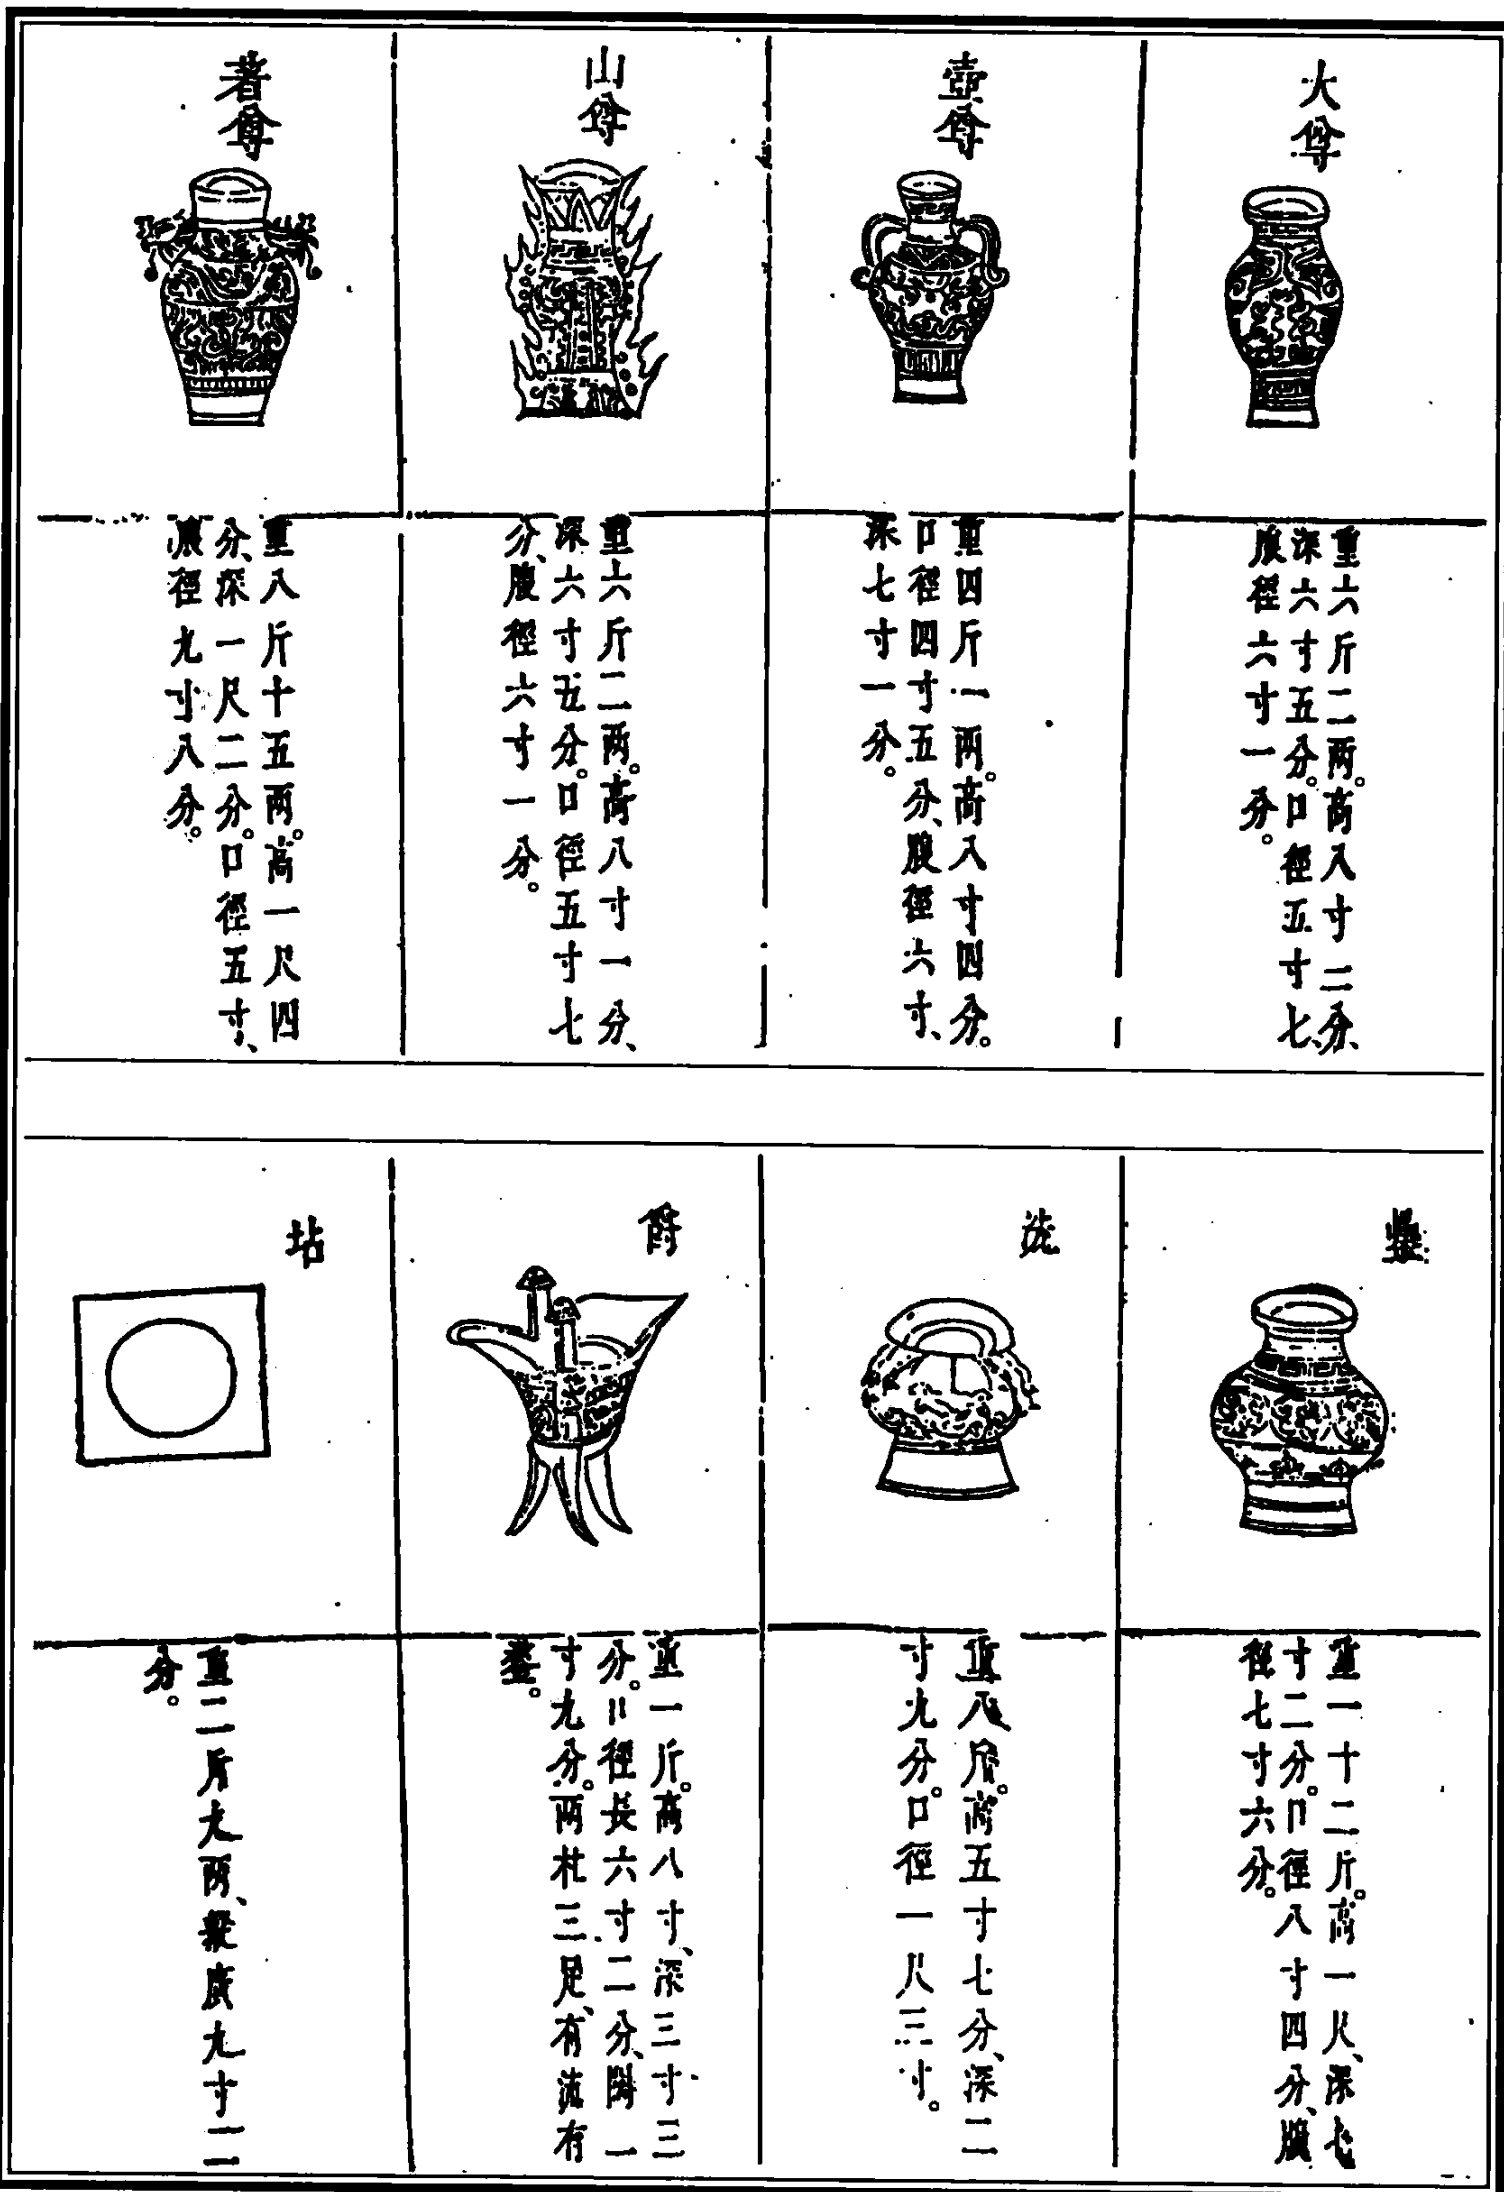 火尊
重六斤二两。高八寸二分、
深六寸五分。口徑五寸七、
腹徑六寸一分。
壺尊
重四斤一两。高八寸四分。
口徑四寸五分、腹徑六寸、
深七寸一分。
山尊
重六斤二两。高八寸一分、
深六寸五分。口徑五寸七
分、腹徑六寸一分。
著尊
重八斤十五两。高一尺四
分、深一尺二分。口徑五寸、
腹徑九寸八分。
罍
重一十二斤。高一尺、深七
寸二分。口徑八寸四分、腹
徑七寸六分。
洗
重八斤。高五寸七分、深二
寸九分。口徑一尺三寸。
爵
重一斤。高八寸、深三寸三
分。口徑長六寸二分、闊一
寸九分。两柱三足、有流有
鋬。
坫
重二斤九两、縱廣九寸二
分。